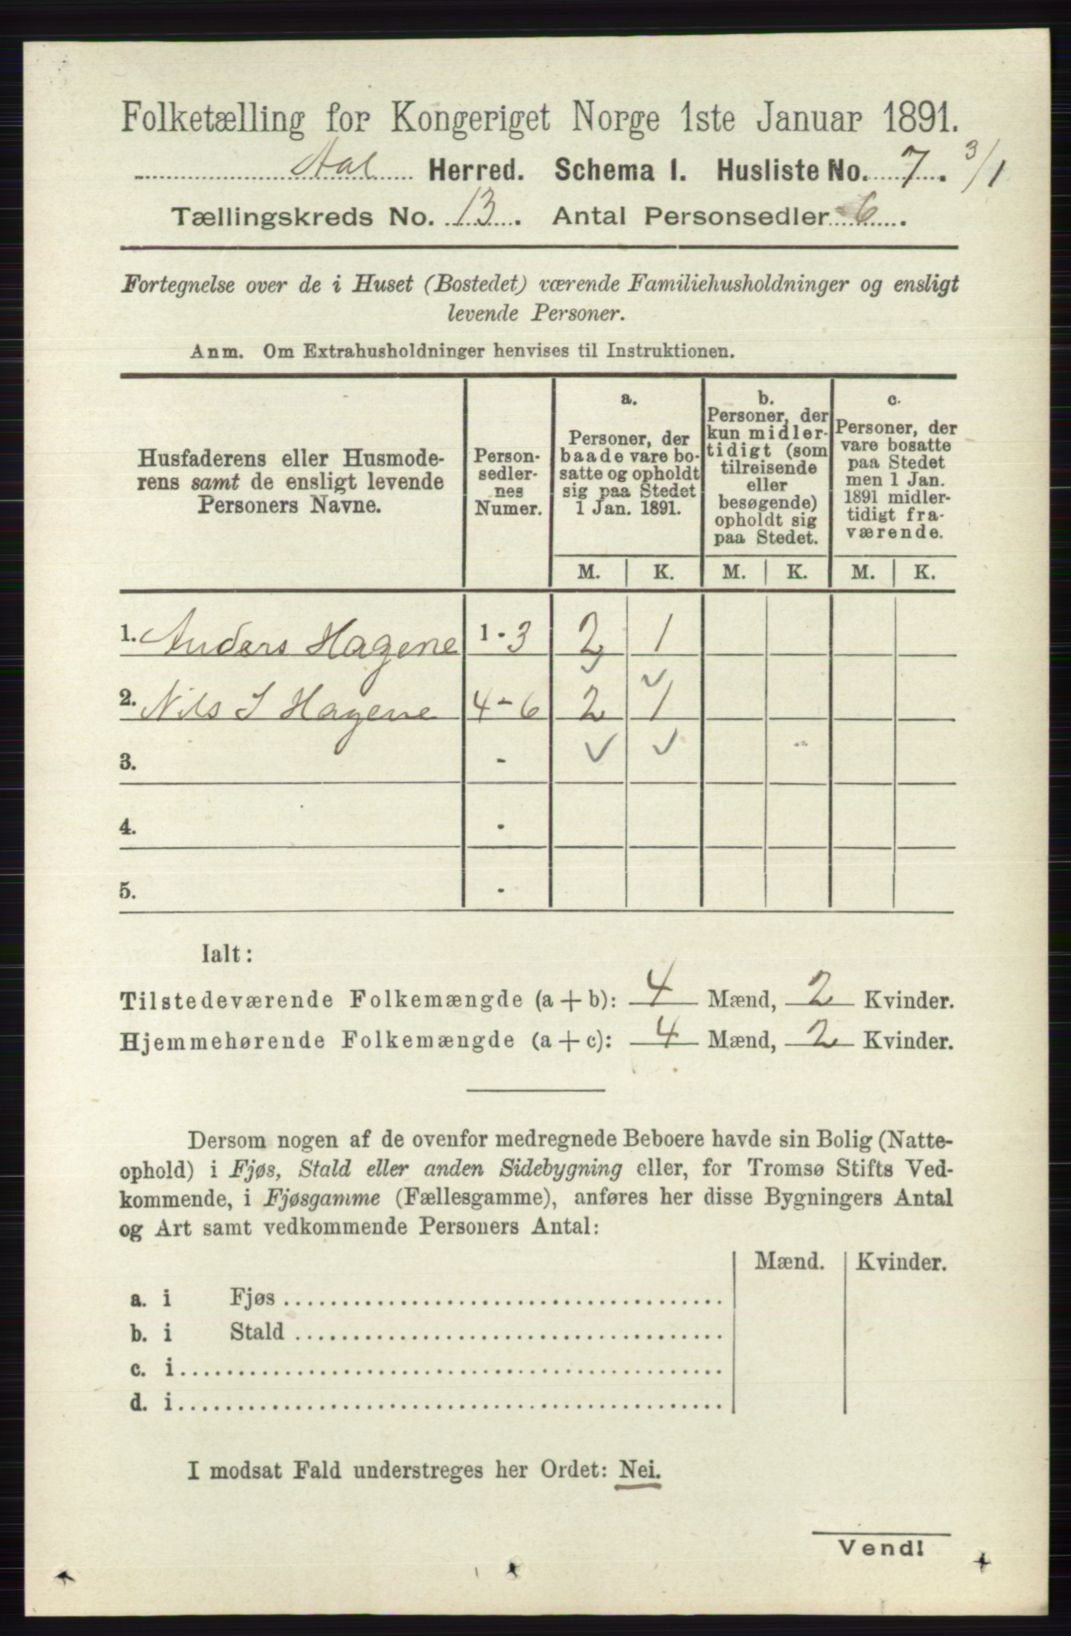 Folketælling for Kongeriget Norge 1ste Januar 1891.
Aal Herred. Schema I. Husliste No. 7. 3/1
Tællingskreds No. 13. Antal Personsedler 6.
Fortegnelse over de i Huset (Bostedet) værende Familiehusholdninger og ensligt
levende Personer.
Anm. Om Extrahusholdninger henvises til Instruktionen.
Husfaderens eller Husmode-
rens samt de ensligt levende
Personers Navne.
Person-
sedler-
nes
Numer.
a.
Personer, der
baade vare bo-
satte og opholdt
sig paa Stedet
1 Jan. 1891.
b.
Personer, der
kun midler-
tidigt (som
tilreisende
eller
besøgende)
opholdt sig
paa Stedet.
c.
Personer, der
vare bosatte
paa Stedet
men 1 Jan.
1891 midler-
tidigt fra-
værende.
M. K. M. K. M. K.
1. Anders Hagene 1-3 2 1
2. Nils S Hagene 4-6 2 1
3. -
4. -
5. -
Ialt:
Tilstedeværende Folkemængde (a + b): 4 Mænd, 2 Kvinder.
Hjemmehørende Folkemængde (a + c): 4 Mænd, 2 Kvinder.
Dersom nogen af de ovenfor medregnede Beboere havde sin Bolig (Natte-
ophold) i Fjøs, Stald eller anden Sidebygning eller, for Tromsø Stifts Ved-
kommende, i Fjøsgamme (Fællesgamme), anføres her disse Bygningers Antal
og Art samt vedkommende Personers Antal:
Mænd. Kvinder.
a. i Fjøs
b. i Stald
c. i
d. i
I modsat Fald understreges her Ordet: Nei.
Vend!